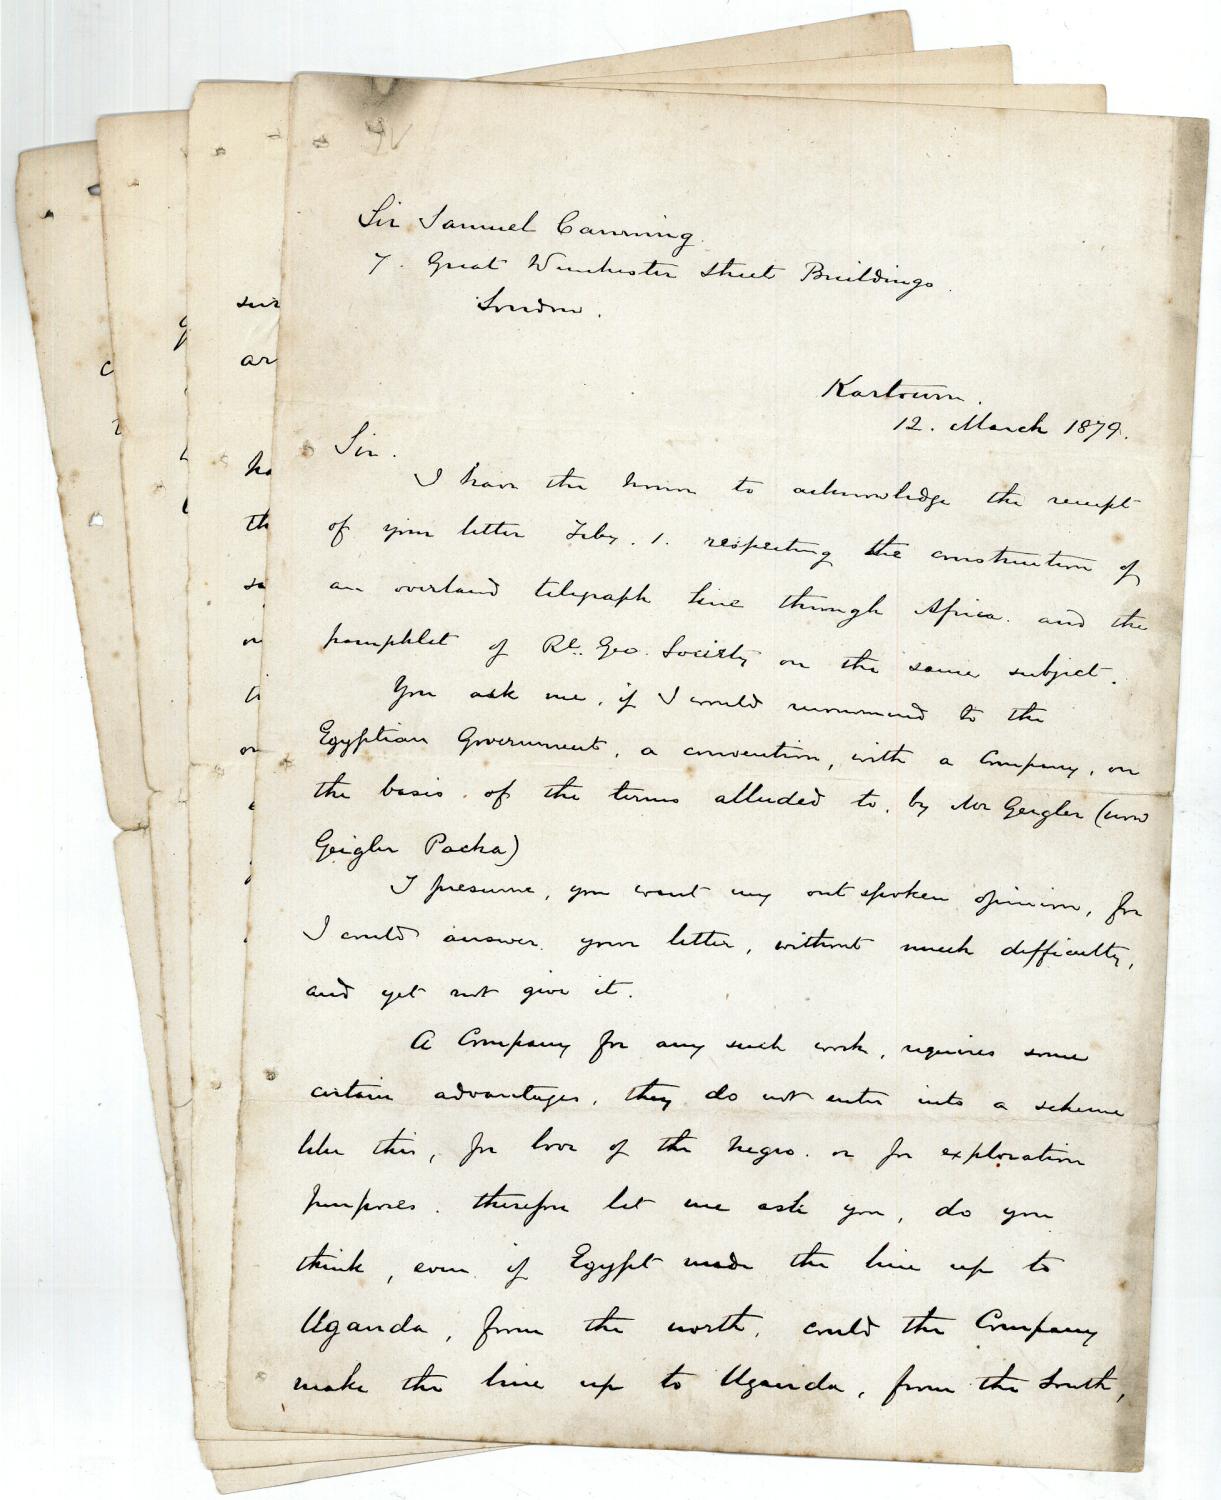 Sir Samuel Canning
7. Great Winchester Street Buildings.
London.
Kartoum.
12. March 1879.
Sir.
I have the honor to acknowledge the receipt
of your letter Feby. 1. respecting the construction of
an overland telegraph line through Africa. and the
pamphlet of Rl. Geo. Society on the same subject.
You ask me, if I would recommend to the
Egyptian Government, a convention, with a Company, on
the basis of the terms alluded to, by Mr Geigler (now
Geigler Pacha)
I presume, you want my out spoken opinion, for
I could answer your letter, without much difficulty,
and yet not give it.
A Company for any such work, requires some
certain advantages, they do not enter into a scheme
like this, for love of the negro. or for exploration
purposes. therefore let me ask you, do you
think, even if Egypt made the line up to
Uganda, from the north, could the Company
make the line up to Uganda, from the South,
sur
ar
ha
th
so
in
ti
on